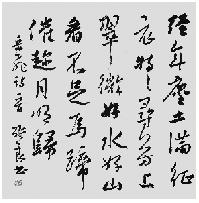 经年尘土满征
衣特特寻芳上
翠微好水好山
看不足馬蹄
催趁月明歸
岳飛詩一首